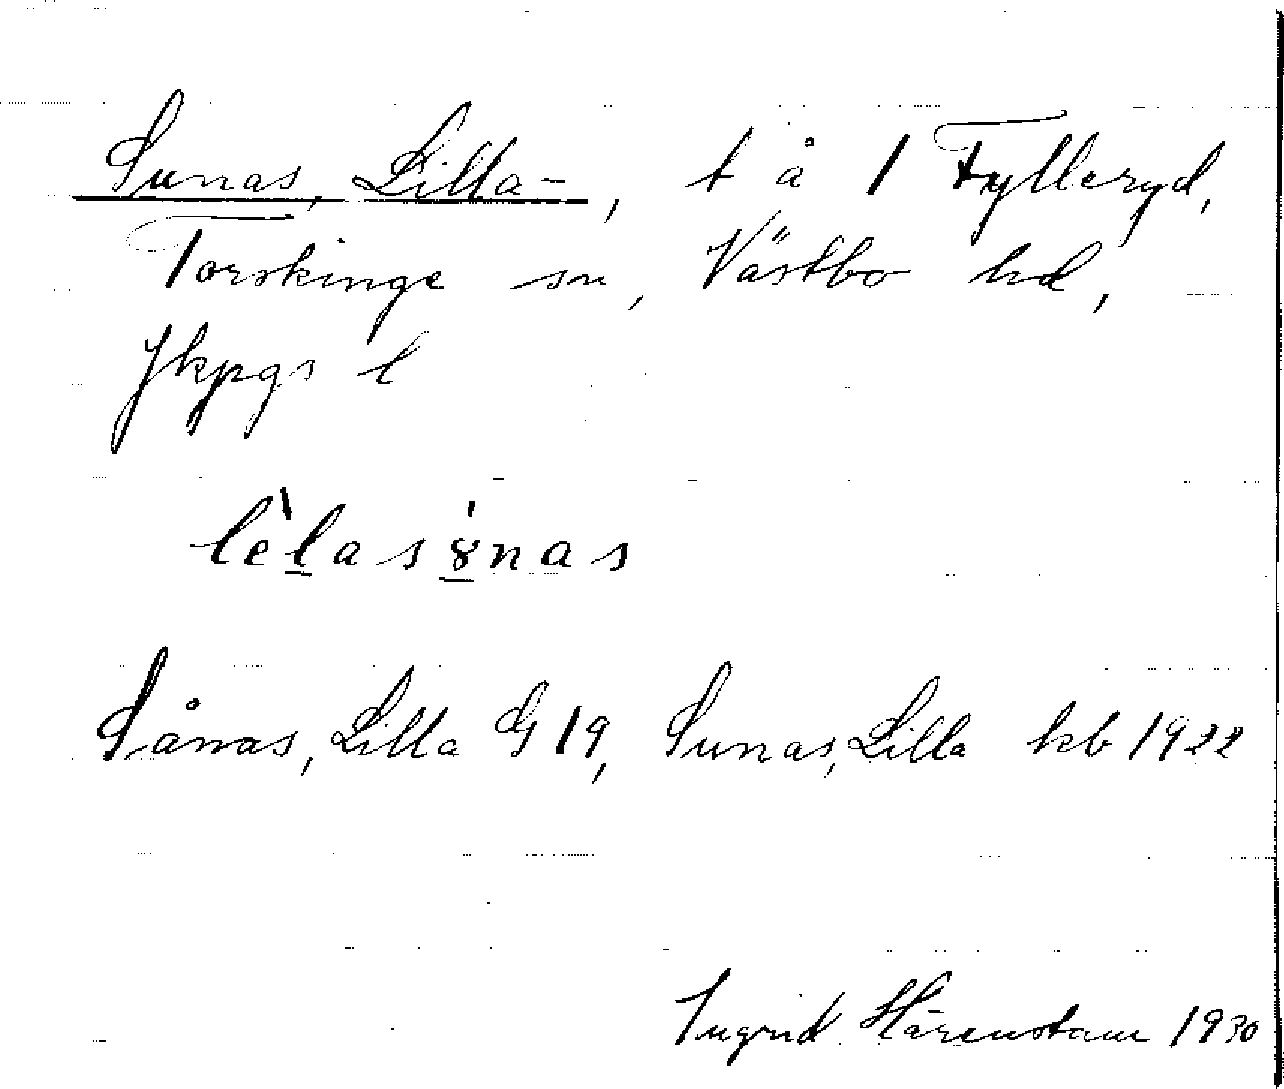 Sunas, Lilla-, t å 1 Fylleryd,
Torskinge sn, Västbo hd,
Jkpgs l
lèlasónas
Sånas, Lilla G 19, Sunas, Lilla kb 1922
Ingrid Härenstam 1930